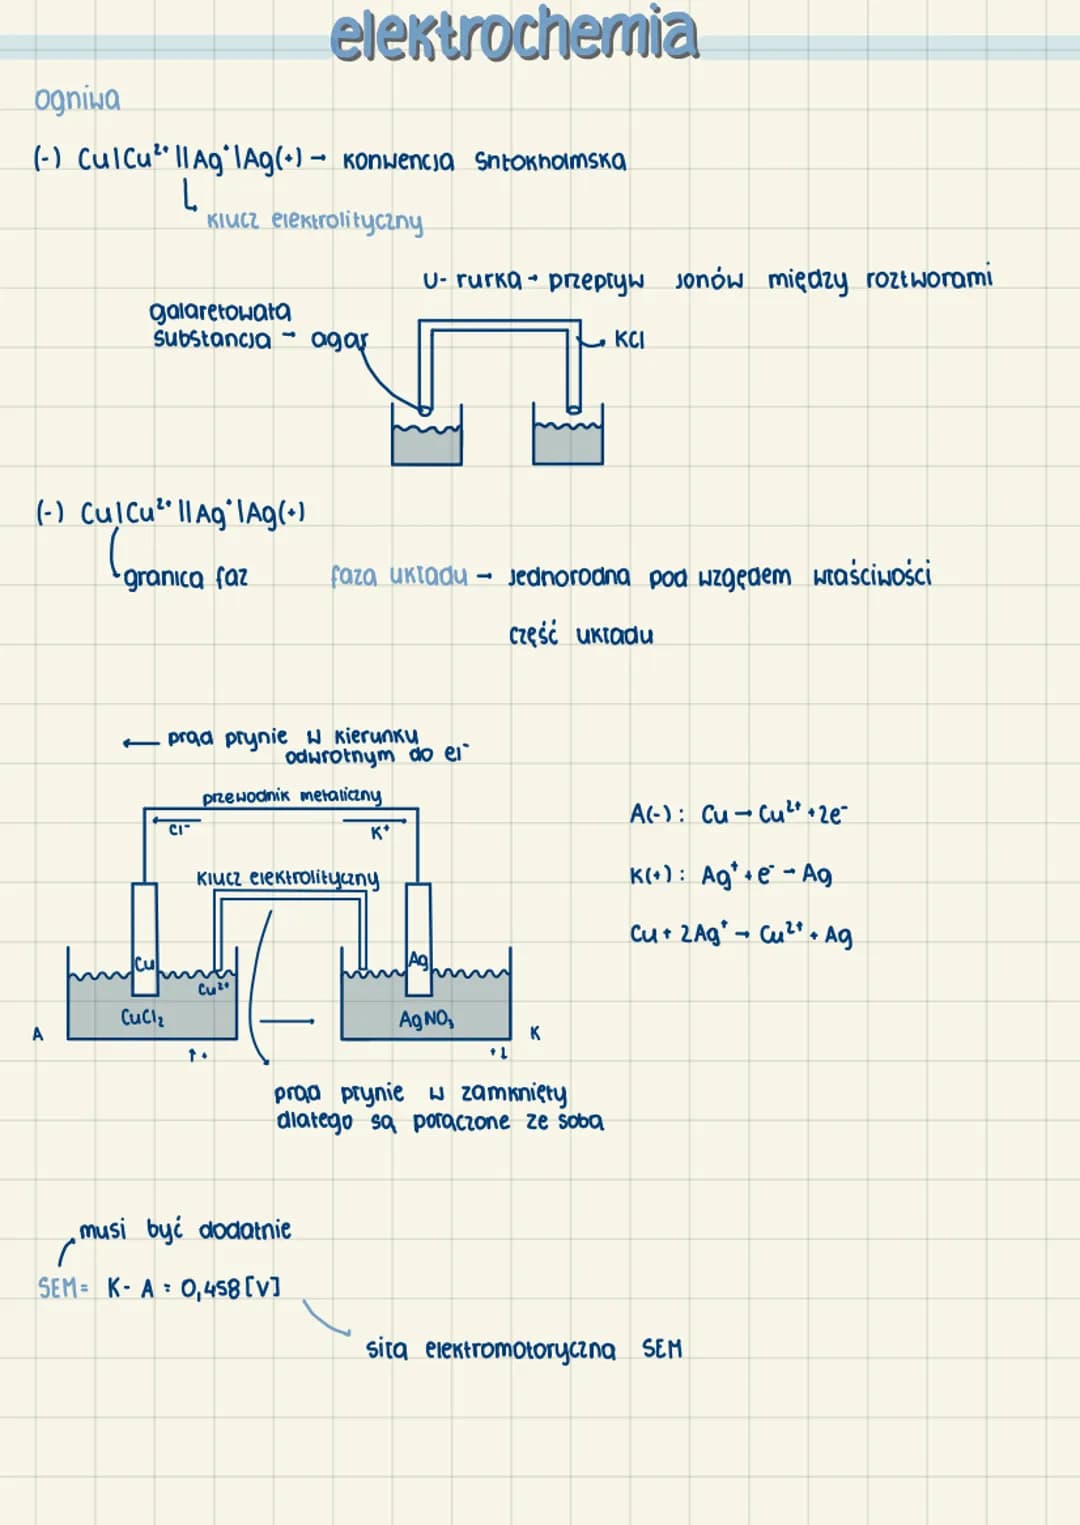 elektrochemia
ogniwa
(-) Cu|Cu²⁺ || Ag⁺|Ag(+) → konwencja Sntokholmska
klucz elektrolityczny
U-rurka → przepływ jonów między roztworami
galaretowata
substancja → agar
KCl
(-) Cu|Cu²⁺ || Ag⁺|Ag(+)
granica faz
faza układu → jednorodna pod wzgędem właściwości
część układu
← prąd płynie w kierunku
odwrotnym do el⁻
przewodnik metaliczny
Cl⁻
K⁺
klucz elektrolityczny
Cu
Cu²⁺
CuCl₂
A
Ag
AgNO₃
K
↑ +
+ ↓
prąd płynie w zamknięty
dlatego są połączone ze sobą
A(-): Cu → Cu²⁺ + 2e⁻
K(+): Ag⁺ + e⁻ → Ag
Cu + 2Ag⁺ → Cu²⁺ + Ag
musi być dodatnie
SEM = K - A = 0,458 [V]
siła elektromotoryczna SEM